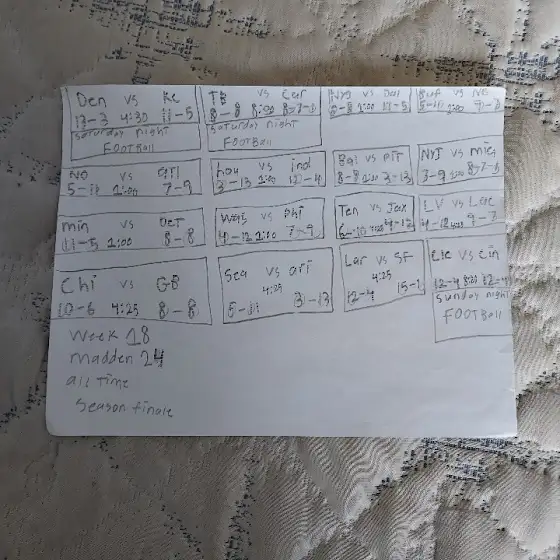 Den vs KC
13-3 4:30 11-5
Saturday night
FOOTBall
TB vs Car
8-8 8:00 8-7-1
Saturday night
FOOTBall
vs
1:00 11-5
Buf vs
1:00
NO vs ATl
5-11 1:00 7-9
Hou vs ind
3-13 1:00 12-4
Bal vs PIT
8-8 1:00 3-13
NYJ vs mia
1:00 8-7-1
min vs DeT
11-5 1:00 8-8
Was vs Phi
4-12 1:00 7-9
Ten vs Jax
6-10 4-12
LV vs Lac
4-12
Chi vs GB
10-6 4:25 8-8
Sea vs ari
4:25
5-11 3-13
Lar vs SF
4:25
12-4 15-1
Cle vs Cin
12-4 8:20 12-4
Sunday night
FOOTBall
Week 18
madden 24
all Time
Season finale